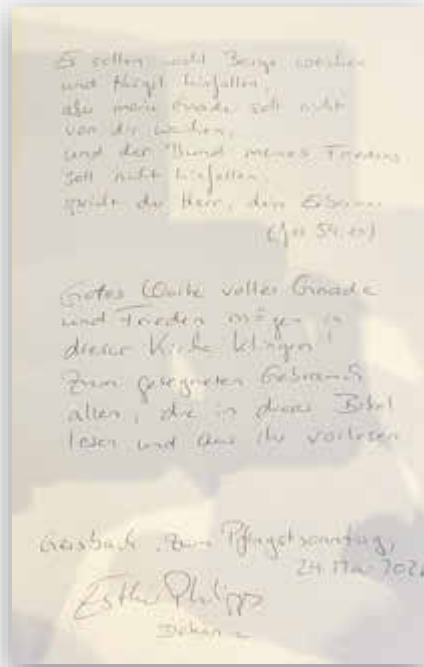 Es sollen wohl Berge weichen
und Hügel hinfallen,
aber meine Gnade soll nicht
von dir weichen,
und der Bund meines Friedens
soll nicht hinfallen,
spricht der Herr, dein Erbarmer
(Jes 54,10)
Gottes Worte voller Gnade
und Frieden mögen in
dieser Kirche klingen!
Zum gesegneten Gebrauch
allen, die in dieser Bibel
lesen und aus ihr vorlesen
zum Pfingstsonntag,
24. Mai
Esther Philipps